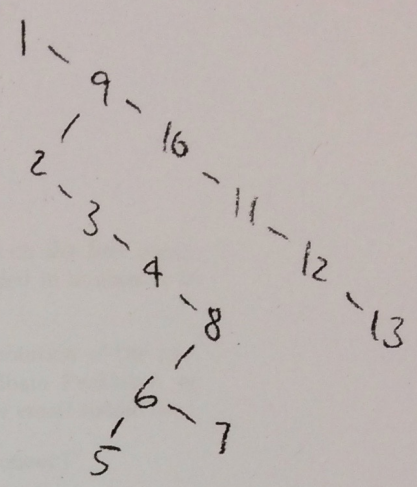 1
9
2 10
3 11
4 12
8 13
6
5 7